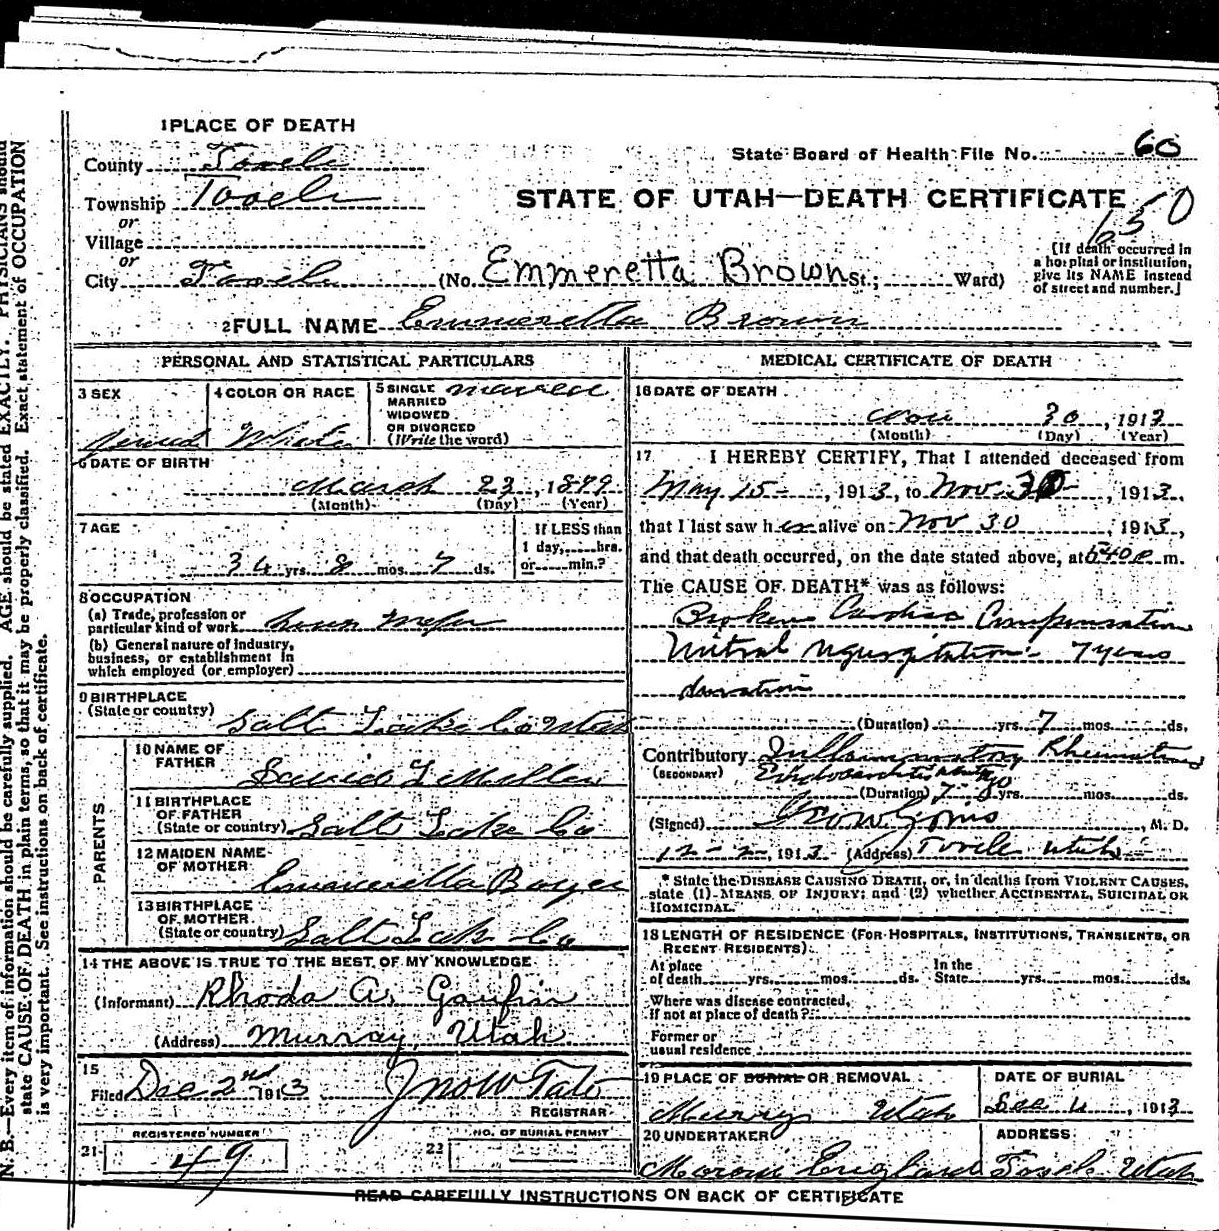 1 PLACE OF DEATH
County Tooele
State Board of Health File No. 60
Township Tooele
STATE OF UTAH—DEATH CERTIFICATE
650
or
Village
or
City Tooele (No. Emmeretta Brown St.; Ward)
[If death occurred in
a hospital or institution,
give its NAME instead
of street and number.]
2 FULL NAME Emmeretta Brown
PERSONAL AND STATISTICAL PARTICULARS
3 SEX
4 COLOR OR RACE White
5 SINGLE
MARRIED
WIDOWED
OR DIVORCED
(Write the word)
married
6 DATE OF BIRTH
March 23, 1879
(Month) (Day) (Year)
7 AGE
34 yrs. 8 mos. 7 ds.
If LESS than
1 day, hrs.
or min.?
8 OCCUPATION
(a) Trade, profession or
particular kind of work
(b) General nature of industry,
business, or establishment in
which employed (or employer)
9 BIRTHPLACE
(State or country) Salt Lake Co Utah
PARENTS
10 NAME OF
FATHER
11 BIRTHPLACE
OF FATHER
(State or country) Salt Lake Co
12 MAIDEN NAME
OF MOTHER
13 BIRTHPLACE
OF MOTHER
(State or country) Salt Lake Co
14 THE ABOVE IS TRUE TO THE BEST OF MY KNOWLEDGE
(Informant) Rhoda A. Gaufin
(Address) Murray, Utah
15
Filed Dec 2nd 1913 Jno W Tate
REGISTRAR
REGISTERED NUMBER
21 49
NO. OF BURIAL PERMIT
22
MEDICAL CERTIFICATE OF DEATH
16 DATE OF DEATH
Nov 30, 1913
(Month) (Day) (Year)
17 I HEREBY CERTIFY, That I attended deceased from
May 15, 1913, to Nov. 30, 1913,
that I last saw her alive on Nov 30, 1913,
and that death occurred, on the date stated above, at 640 P m.
The CAUSE OF DEATH* was as follows:
Broken Cardiac Compensation
Mitral regurgitation 7 years
duration
(Duration) yrs. 7 mos. ds.
Contributory Inflammatory Rheumatism
(SECONDARY) Endocarditis
(Duration) yrs. mos. ds.
(Signed) , M. D.
12-2-, 1913 (Address) Tooele Utah
* State the DISEASE CAUSING DEATH, or, in deaths from VIOLENT CAUSES,
state (1) MEANS OF INJURY; and (2) whether ACCIDENTAL, SUICIDAL OR
HOMICIDAL.
18 LENGTH OF RESIDENCE (FOR HOSPITALS, INSTITUTIONS, TRANSIENTS, OR
RECENT RESIDENTS).
At place
of death yrs. mos. ds.
In the
State yrs. mos. ds.
Where was disease contracted,
if not at place of death?
Former or
usual residence
19 PLACE OF BURIAL OR REMOVAL
Murray Utah
DATE OF BURIAL
Dec 4, 1913
20 UNDERTAKER
Moroni England
ADDRESS
Tooele Utah
READ CAREFULLY INSTRUCTIONS ON BACK OF CERTIFICATE
N. B.—Every item of information should be carefully supplied. AGE should be stated EXACTLY. PHYSICIANS should
state CAUSE OF DEATH in plain terms, so that it may be properly classified. Exact statement of OCCUPATION
is very important. See instructions on back of certificate.